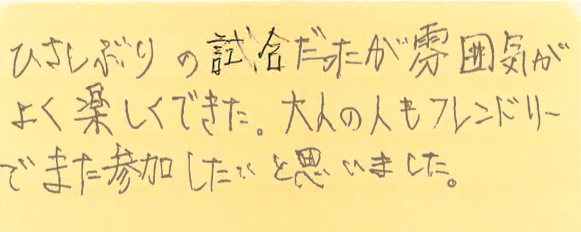 ひさしぶりの試合だったが雰囲気が
よく楽しくできた。大人の人もフレンドリー
でまた参加したいと思いました。